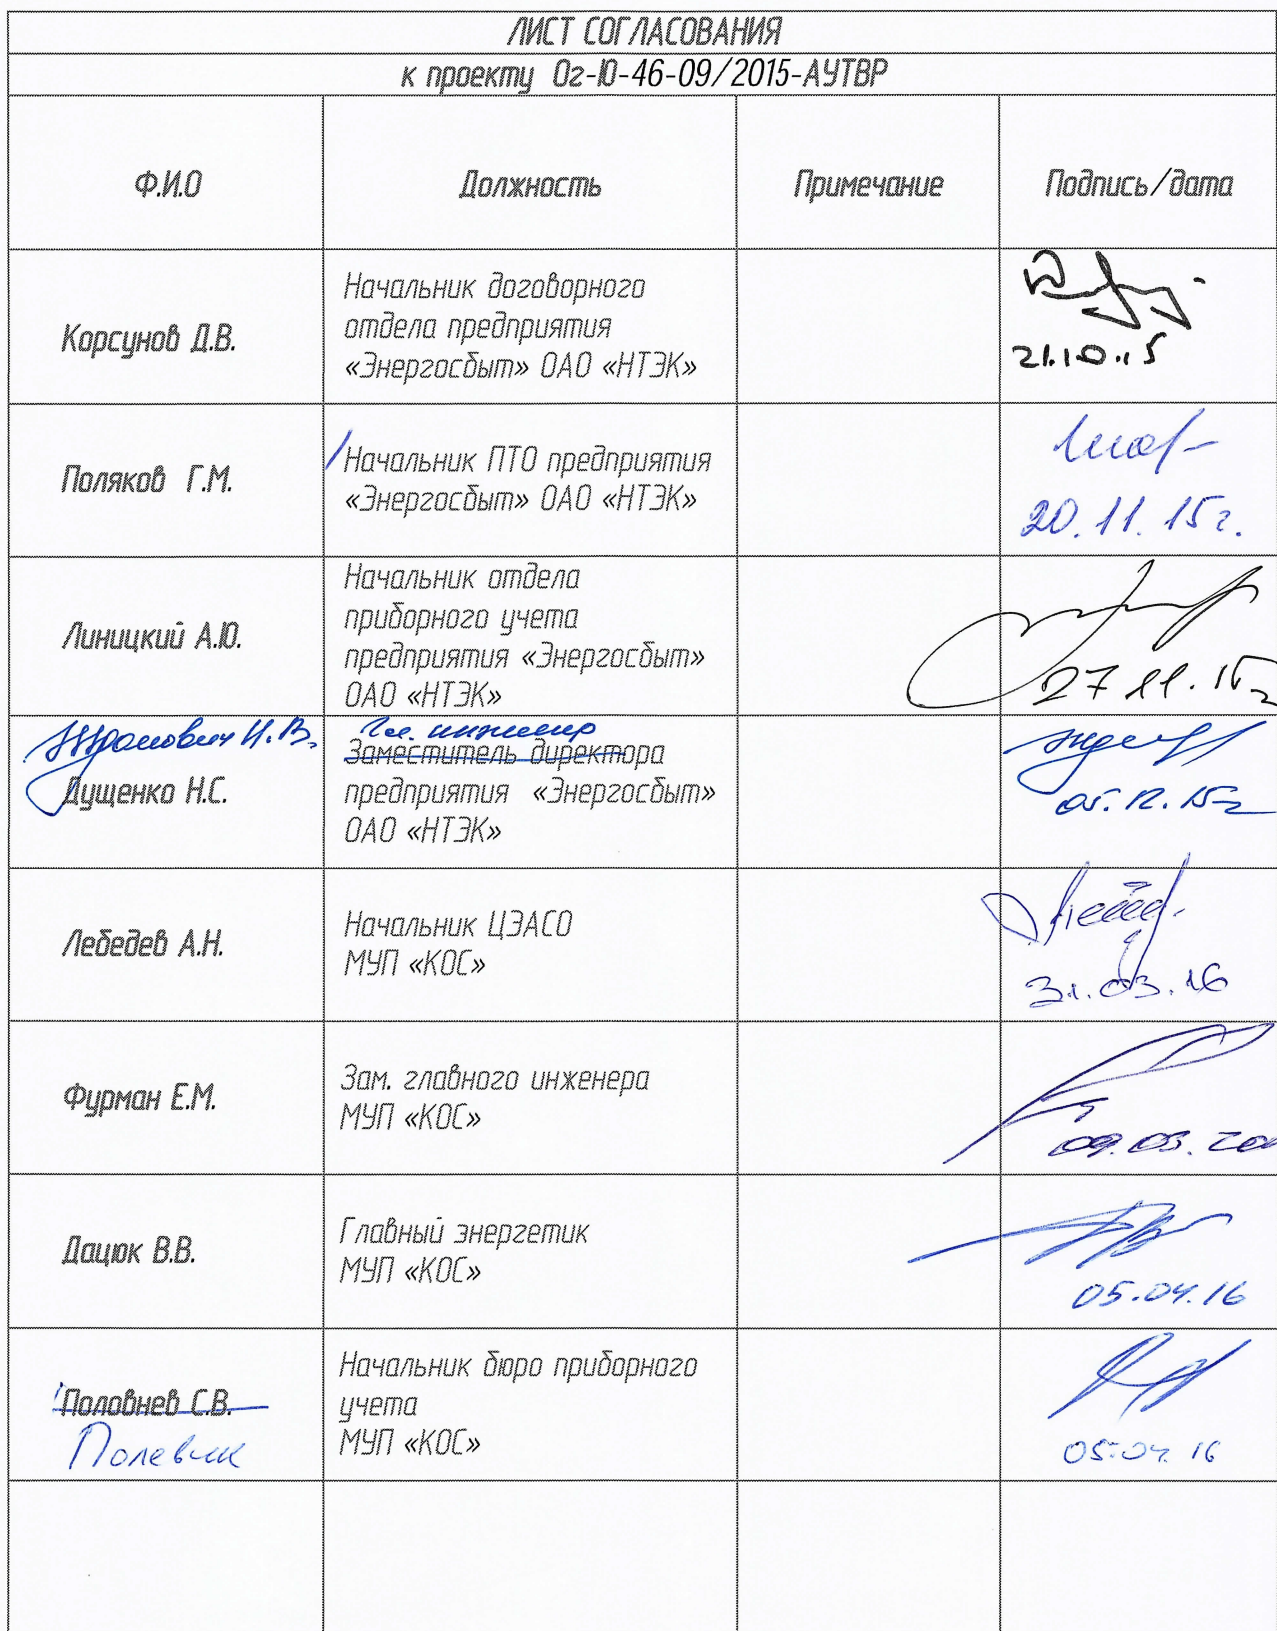 ЛИСТ СОГЛАСОВАНИЯ
к проекту Ог-Ю-46-09/2015-АУТВР
Ф.И.О
Должность
Примечание
Подпись/дата
Корсунов Д.В.
Начальник договорного
отдела предприятия
«Энергосбыт» ОАО «НТЭК»
21.10.15
Поляков Г.М.
Начальник ПТО предприятия
«Энергосбыт» ОАО «НТЭК»
20.11.15г.
Линицкий А.Ю.
Начальник отдела
приборного учета
предприятия «Энергосбыт»
ОАО «НТЭК»
27.11.15г
Дущенко Н.С.
Гл. инженер
Заместитель директора
предприятия «Энергосбыт»
ОАО «НТЭК»
05.12.15г
Лебедев А.Н.
Начальник ЦЭАСО
МУП «КОС»
31.03.16
Фурман Е.М.
Зам. главного инженера
МУП «КОС»
Дацюк В.В.
Главный энергетик
МУП «КОС»
05.04.16
Половнев С.В.
Полевик
Начальник бюро приборного
учета
МУП «КОС»
05.04.16